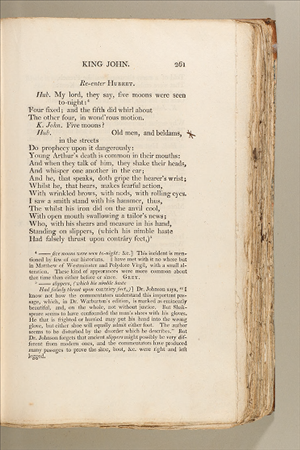 KING JOHN. 261
Re-enter HUBERT.
Hub. My lord, they say, five moons were seen
to-night:*
Four fixed; and the fifth did whirl about
The other four, in wond'rous motion.
K. John. Five moons?
Hub. Old men, and beldams,
in the streets
Do prophecy upon it dangerously:
Young Arthur's death is common in their mouths:
And when they talk of him, they shake their heads,
And whisper one another in the ear;
And he, that speaks, doth gripe the hearer's wrist;
Whilst he, that hears, makes fearful action,
With wrinkled brows, with nods, with rolling eyes.
I saw a smith stand with his hammer, thus,
The whilst his iron did on the anvil cool,
With open mouth swallowing a tailor's news;
Who, with his shears and measure in his hand,
Standing on slippers, (which his nimble haste
Had falsely thrust upon contráry feet,)
—— five moons were seen to-night: &c.] This incident is men-
tioned by few of our historians. I have met with it no where but
in Matthew of Westminster and Polydore Virgil, with a small al-
teration. These kind of appearances were more common about
that time than either before or since. GREY.
—— slippers, (which his nimble haste
Had falsely thrust upon contráry feet,)] Dr. Johnson says, "I
know not how the commentators understand this important pas-
sage, which, in Dr. Warburton's edition, is marked as eminently
beautiful, and, on the whole, not without justice. But Shak-
speare seems to have confounded the man's shoes with his gloves.
He that is frighted or hurried may put his hand into the wrong
glove, but either shoe will equally admit either foot. The author
seems to be disturbed by the disorder which he describes." But
Dr. Johnson forgets that ancient slippers might possibly be very dif-
ferent from modern ones, and the commentators have produced
many passages to prove the shoe, boot, &c. were right and left
legged.